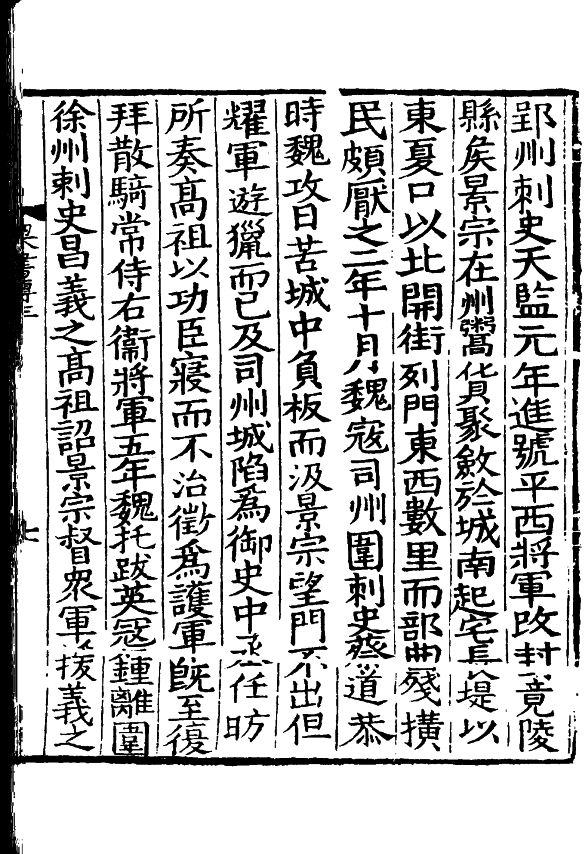 郢州刺史天監元年進號平西將軍改封竟陵
縣矦景宗在州鬻貨聚斂於城南起宅長堤以
東夏口以北開街列門東西數里而部曲殘撗
民頗厭之二年十月魏寇司州圍刺史蔡道恭
時魏攻日苦城中負板而汲景宗望門不出但
耀軍遊獵而已及司州城陷爲御史中丞任昉
所奏髙祖以功臣寢而不治徵爲護軍旣至復
拜散騎常侍右衞將軍五年魏托跋英寇鍾離圍
徐州刺史昌義之髙祖詔景宗督衆軍援義之
梁書傳三
七